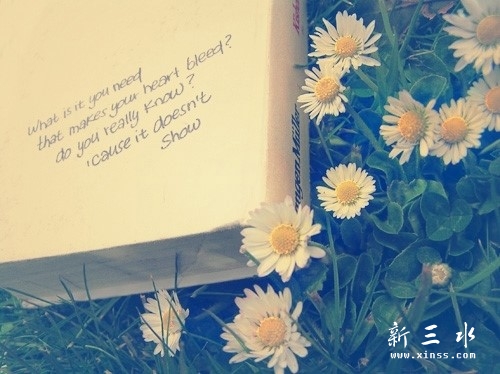 What is it you need
that makes your heart bleed?
do you really know?
'cause it doesn't
show
新三水
www.xinss.com